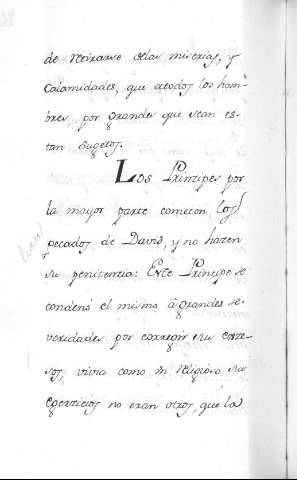 de retirarse delas miserias, y
Calamidades, que atodos los hom-
bres, por grandes que sean es-
tan Sugetos.
Los Principes por
la mayor parte cometen los
pecados de David, y no hazen
su penitencia: Este Principe se
condenó el mismo á grandes se-
veridades por corregir sus exce-
sos, vivia como un religioso sus
egercicios no eran otros, que la